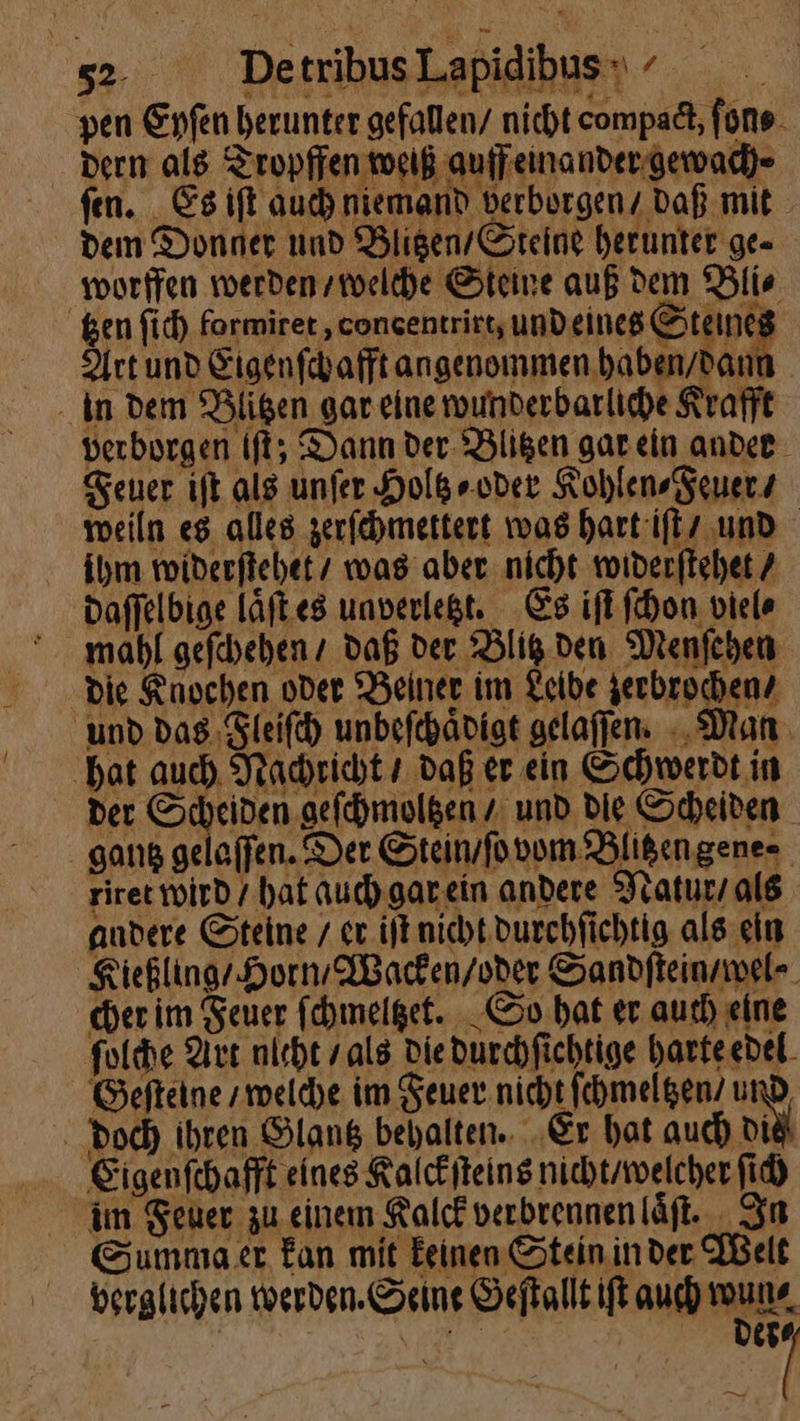 52 De tribus Lapidibus /
pen Eyſen herunter gefallen/ nicht compact, ſon⸗
dern als Tropffen weiß auff einander gewach⸗
ſen. Es iſt auch niemand verborgen / daß mit
dem Donner und Blitzen/Steine herunter ge⸗
worffen werden / welche Steine auß dem Bli⸗
tzen ſich formiret, concentrirt, und eines Steines
Art und Eigenſchafft angenommen haben/dann
in dem Blitzen gar eine wunderbarliche Krafft
verborgen iſt; Dann der Blitzen gar ein ander
Feuer iſt als unſer Holtz⸗oder Kohlen⸗Feuer /
weiln es alles zerſchmettert was hart iſt / und
ihm widerſtehet / was aber nicht widerſtehet /
daſſelbige laͤſt es unverletzt. Es iſt ſchon viel⸗
mahl geſchehen / daß der Blitz den Menſchen
die Knochen oder Beiner im Leibe zerbrochen/
und das Fleiſch unbeſchaͤdigt gelaſſen. Man
hat auch Nachricht / daß er ein Schwerdt in
der Scheiden geſchmoltzen / und die Scheiden
gantz gelaſſen. Der Stein/ſo vom Blitzen gene⸗
riret wird / hat auch gar ein andere Natur/ als
andere Steine / er iſt nicht durchſichtig als ein
Kießling/Horn/Wacken/oder Sandſtein/wel⸗
cher im Feuer ſchmeltzet. So hat er auch eine
ſolche Art nicht / als die durchſichtige harte edel
Geſteine / welche im Feuer nicht ſchmeltzen/ und
doch ihren Glantz behalten. Er hat auch die
Eigenſchafft eines Kalckſteins nicht/welcher ſich
im Feuer zu einem Kalck verbrennen laͤſt. In
Summa er kan mit keinen Stein in der Welt
verglichen werden. Seine Geſtallt iſt auch wun⸗
der⸗